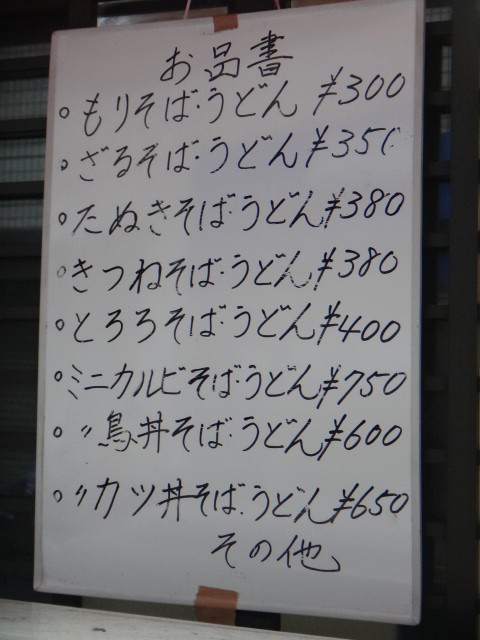 お品書
もりそば・うどん ¥300
ざるそば・うどん ¥350
たぬきそば・うどん ¥380
きつねそば・うどん ¥380
とろろそば・うどん ¥400
ミニカルビそば・うどん ¥750
〃鳥丼そば・うどん ¥600
〃カツ丼そば・うどん ¥650
その他